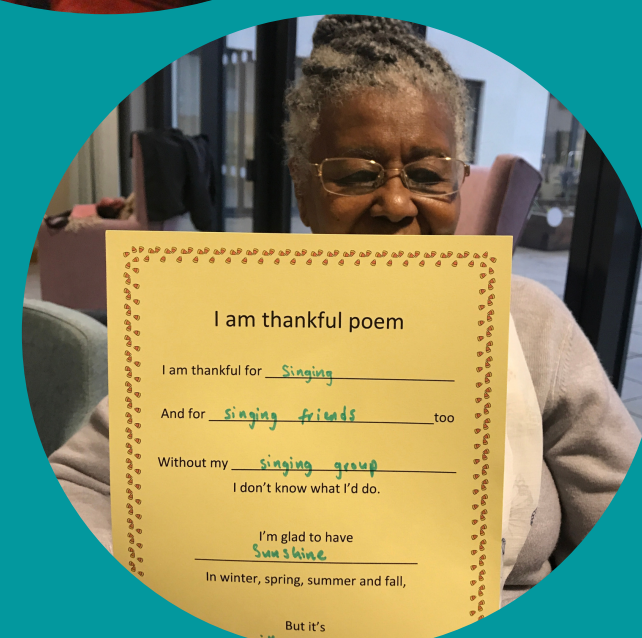 I am thankful poem
I am thankful for Singing
And for singing friends too
Without my singing group
I don't know what I'd do.
I'm glad to have
Sunshine
In winter, spring, summer and fall,
But it's